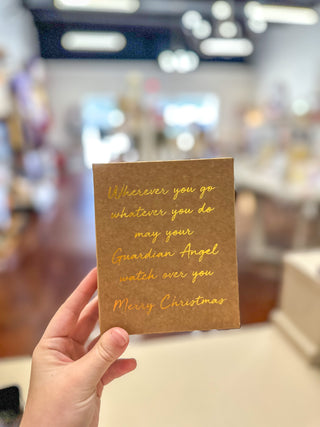 Wherever you go
whatever you do
may your
Guardian Angel
watch over you
Merry Christmas